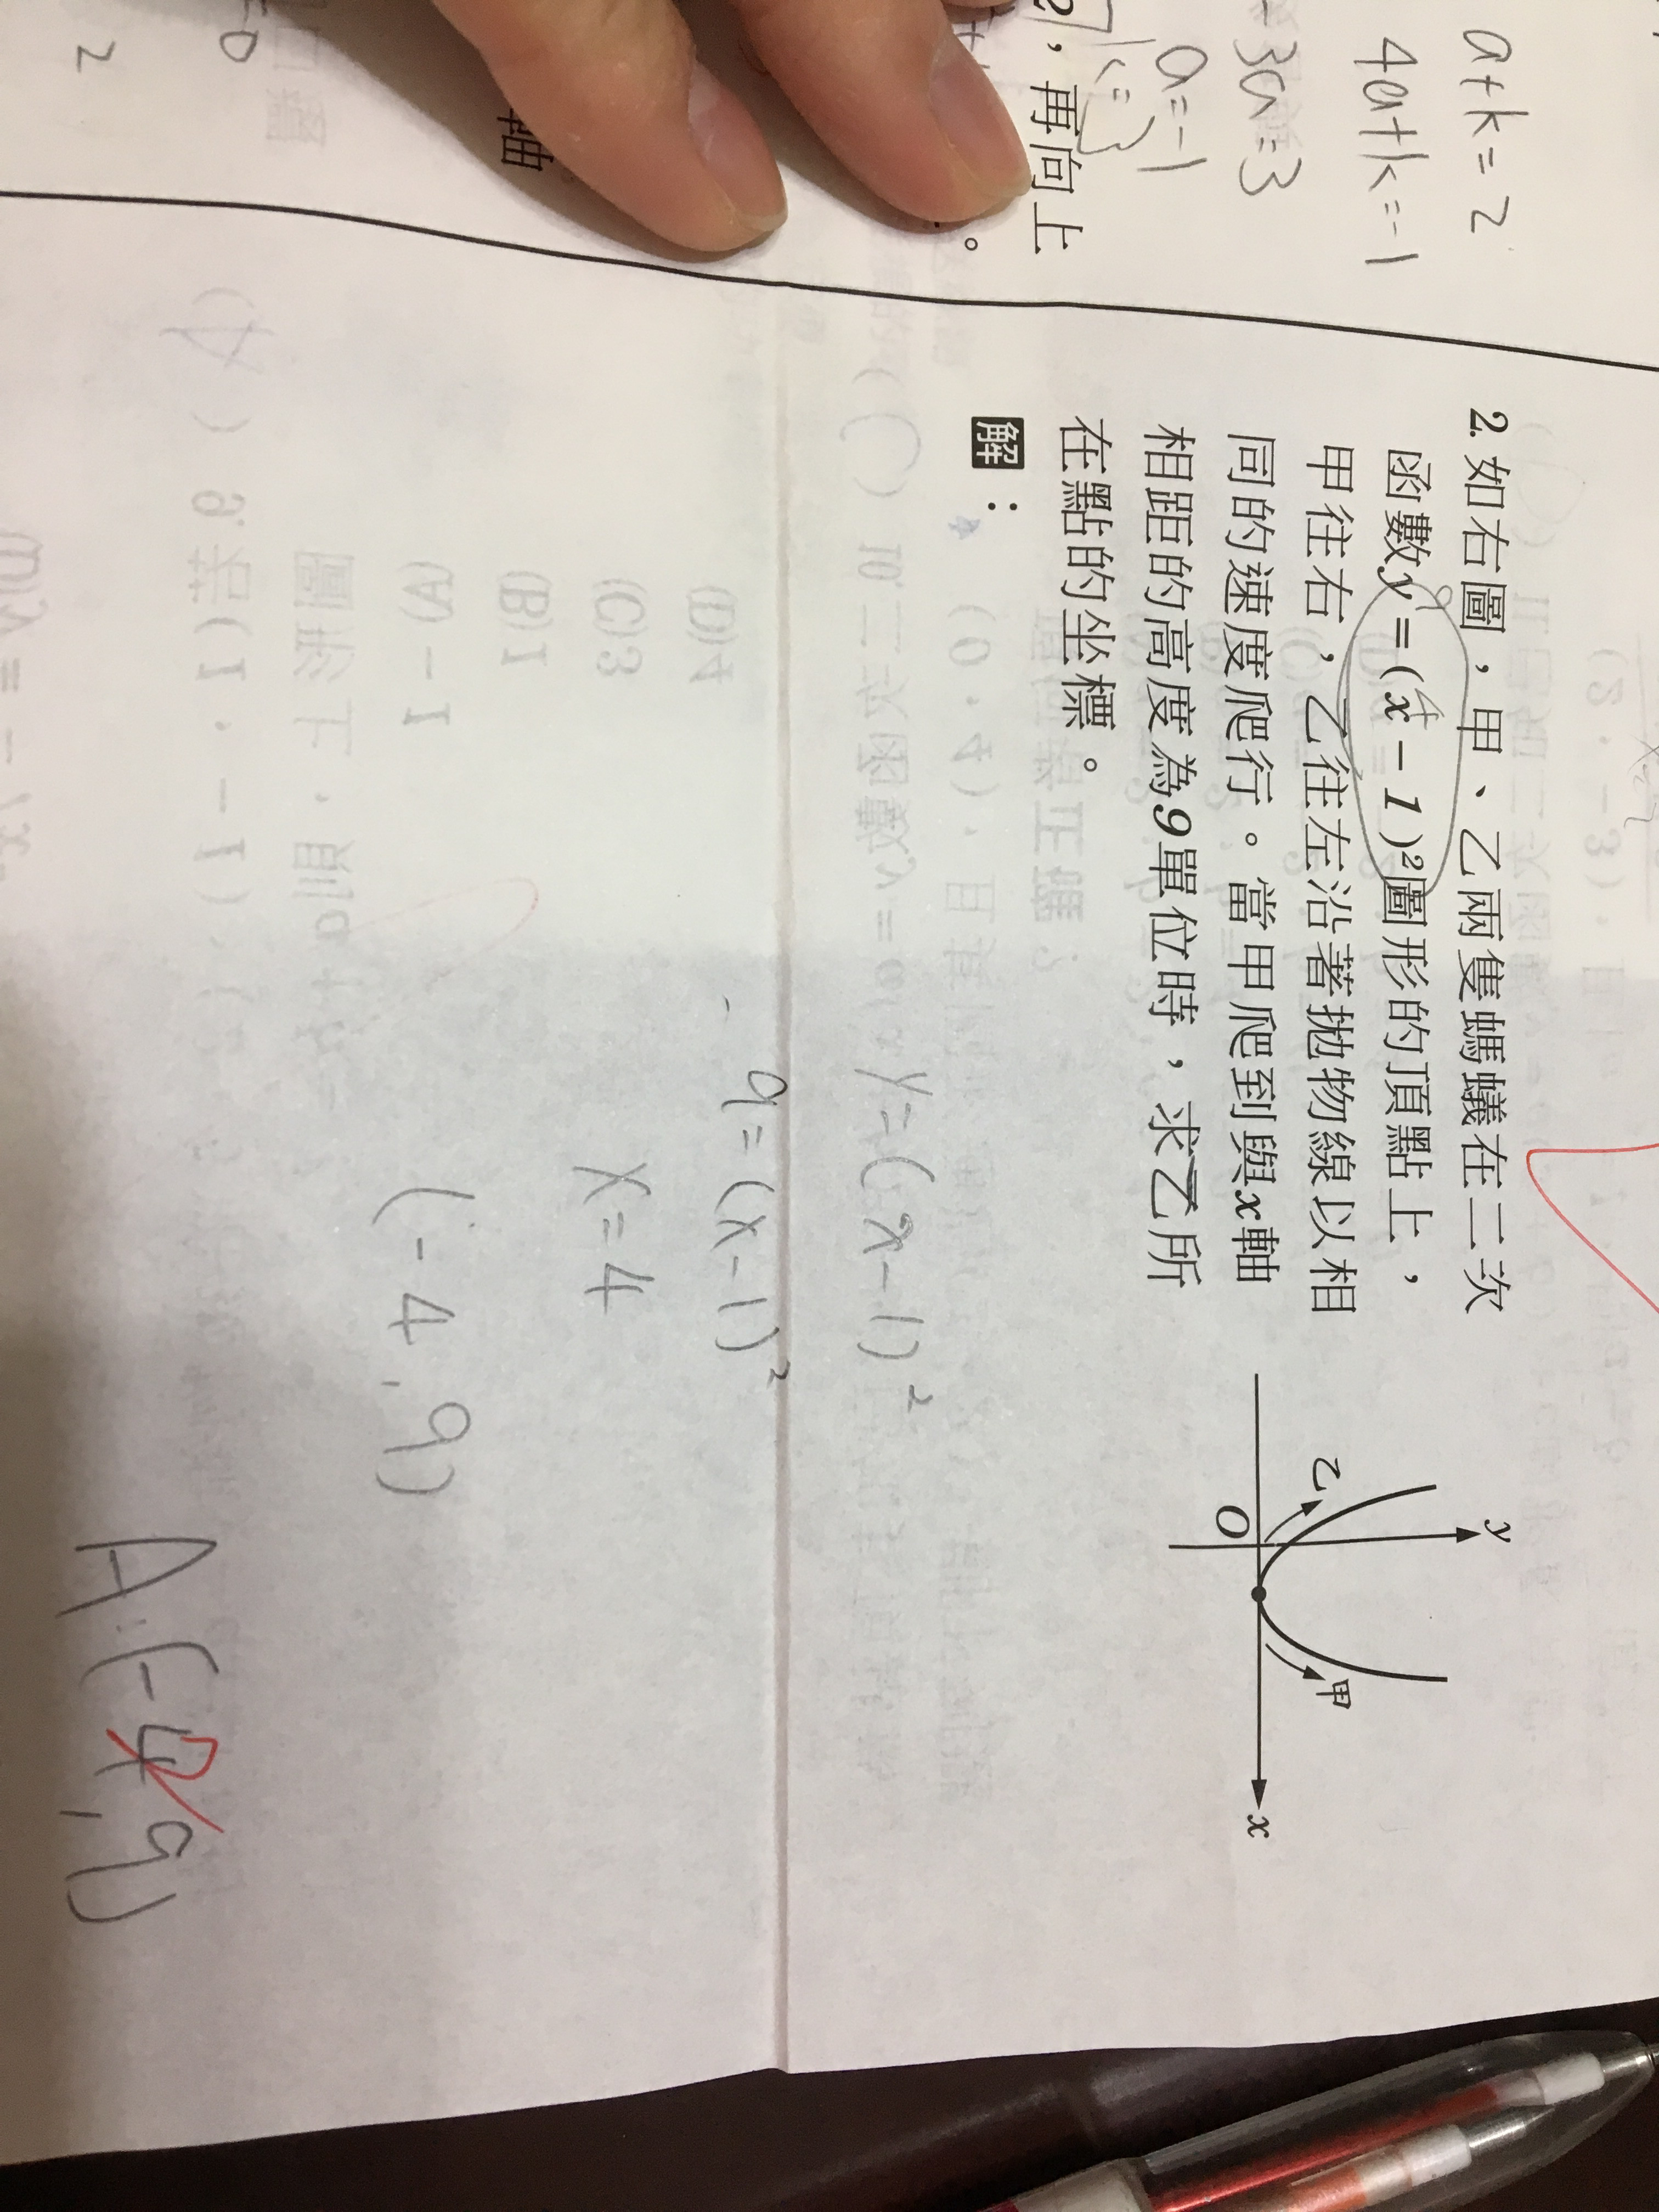 a+k=2
4a+k=-1
-3a=3
a=-1
k=3
2，再向上
。
軸
2
2.如右圖，甲、乙兩隻螞蟻在二次
函數y=(x-1)²圖形的頂點上，
4
甲往右，乙往左沿著拋物線以相
同的速度爬行。當甲爬到與x軸
相距的高度為9單位時，求乙所
在點的坐標。
解：
y
乙
甲
O
x
y=(x-1)²
9=(x-1)²
x=4
(-4,9)
A:(-4,9)
2